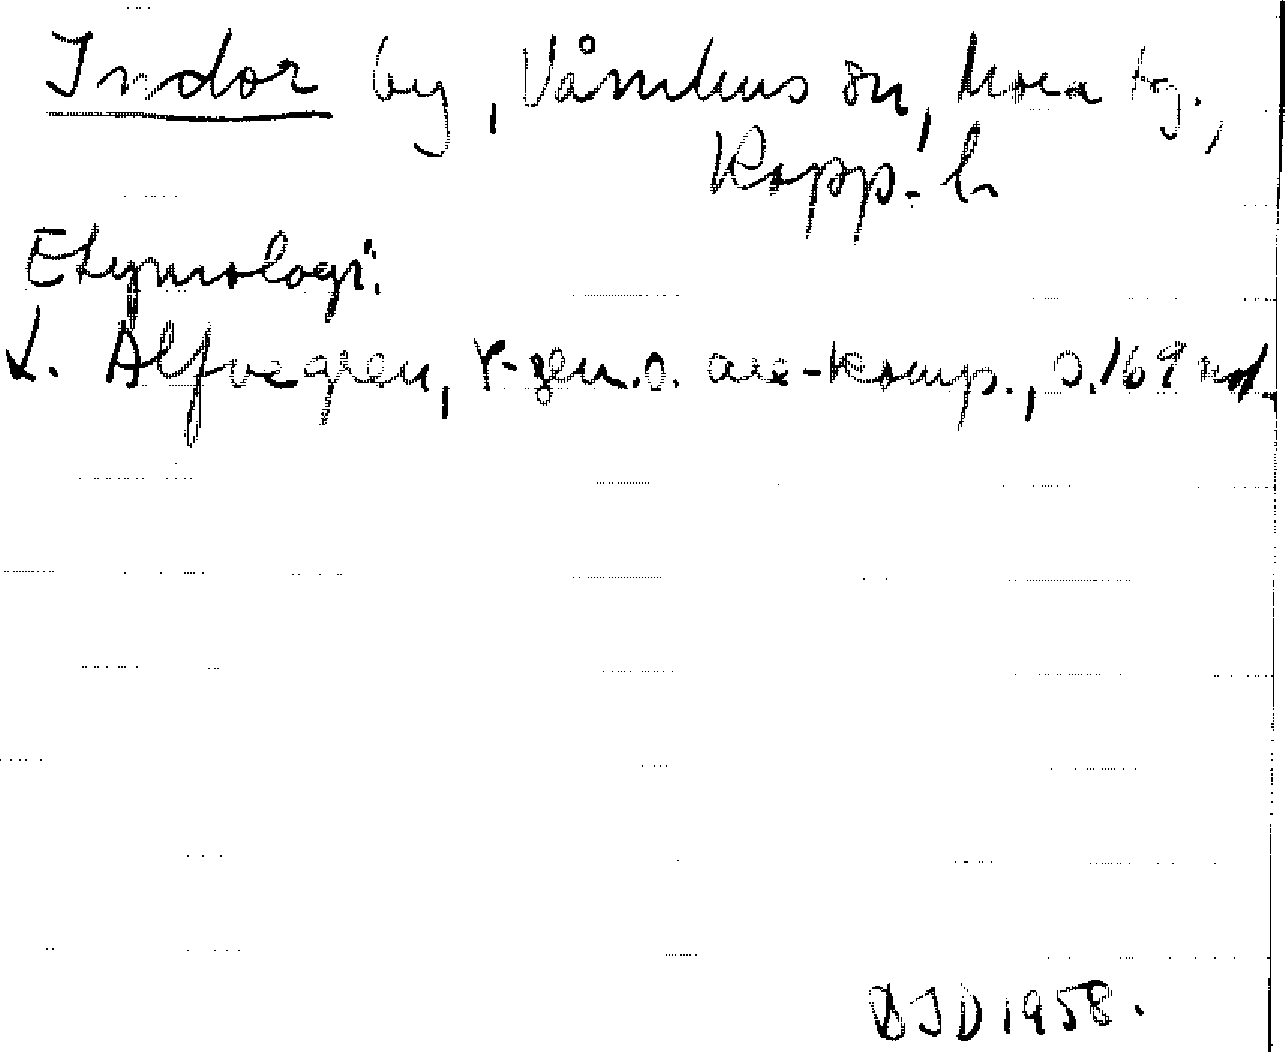 Indor by, Våmhus sn, Mora tg.,
Kopp. l.
Etymologi:
L. Alfvegren, r-gen. o. are-komp., s. 169 not.
BJD 1958.